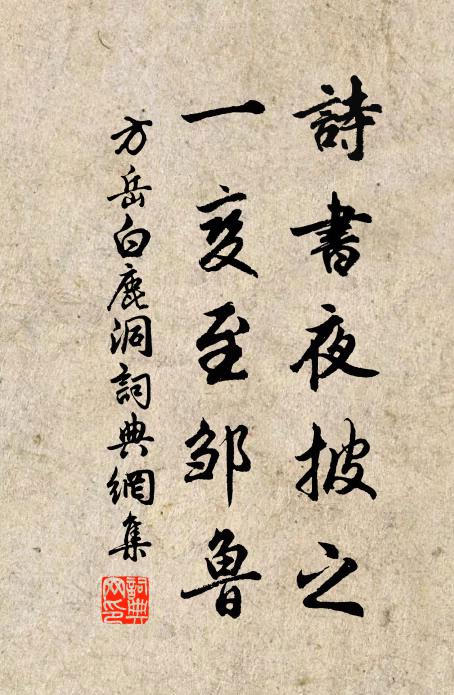 詩書夜披之
一变至邹魯
方岳白鹿洞詞典網集
詞典网印